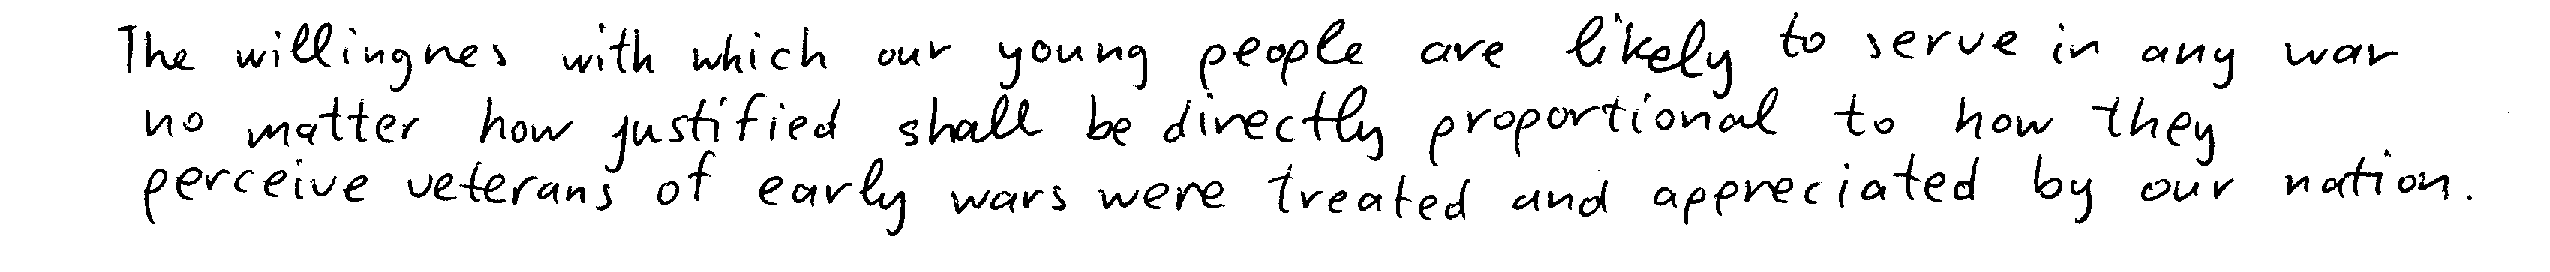 The willingnes with which our young people are likely to serve in any war
no matter how justified shall be directly proportional to how they
perceive veterans of early wars were treated and appreciated by our nation.